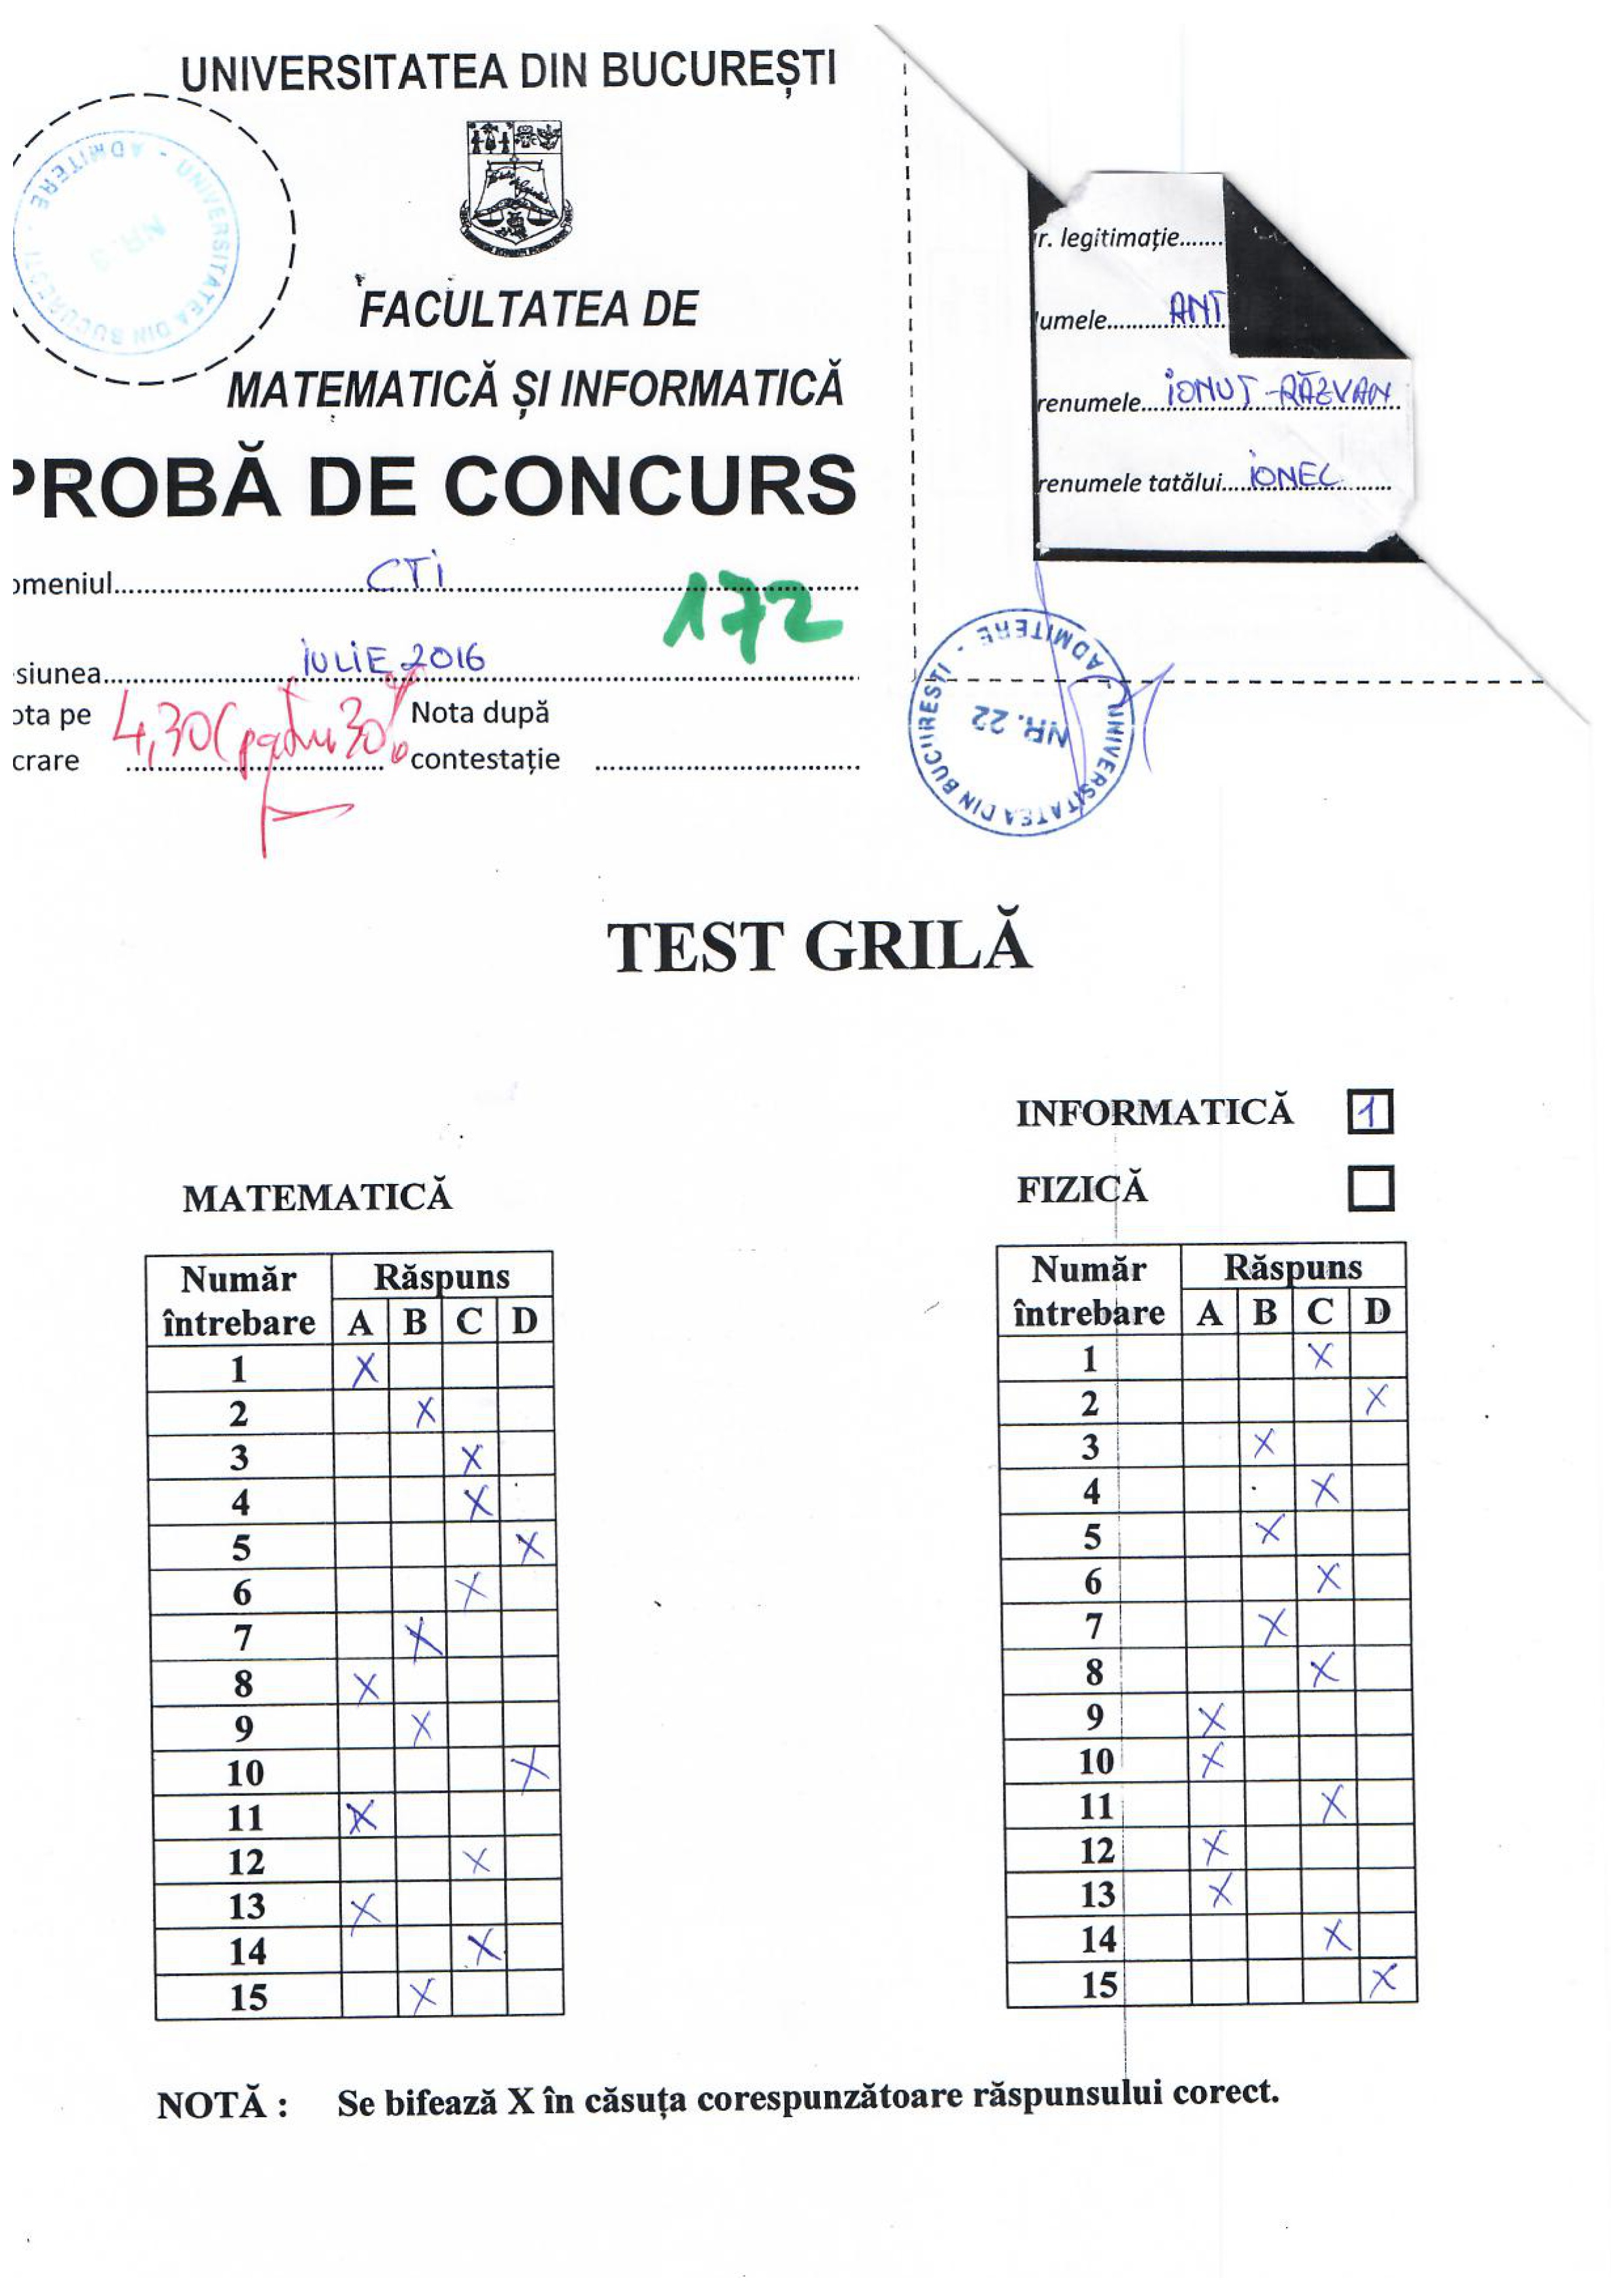 UNIVERSITATEA DIN BUCUREȘTI
UNIVERSITATEA DIN BUCUREȘTI - ADMITERE -
NR. 3
FACULTATEA DE
MATEMATICĂ ȘI INFORMATICĂ
PROBĂ DE CONCURS
omeniul CTI
172
siunea IULIE 2016
ota pe 4,30 (patru 30% Nota după
crare contestație
r. legitimație
umele ANT
renumele IONUȚ-RĂZVAN
renumele tatălui IONEL
UNIVERSITATEA DIN BUCUREȘTI - ADMITERE -
NR. 22
TEST GRILĂ
INFORMATICĂ 1
FIZICĂ
MATEMATICĂ
Număr Răspuns
întrebare A B C D
1 X
2 X
3 X
4 X
5 X
6 X
7 X
8 X
9 X
10 X
11 X
12 X
13 X
14 X
15 X
Număr Răspuns
întrebare A B C D
1 X
2 X
3 X
4 X
5 X
6 X
7 X
8 X
9 X
10 X
11 X
12 X
13 X
14 X
15 X
NOTĂ : Se bifează X în căsuța corespunzătoare răspunsului corect.